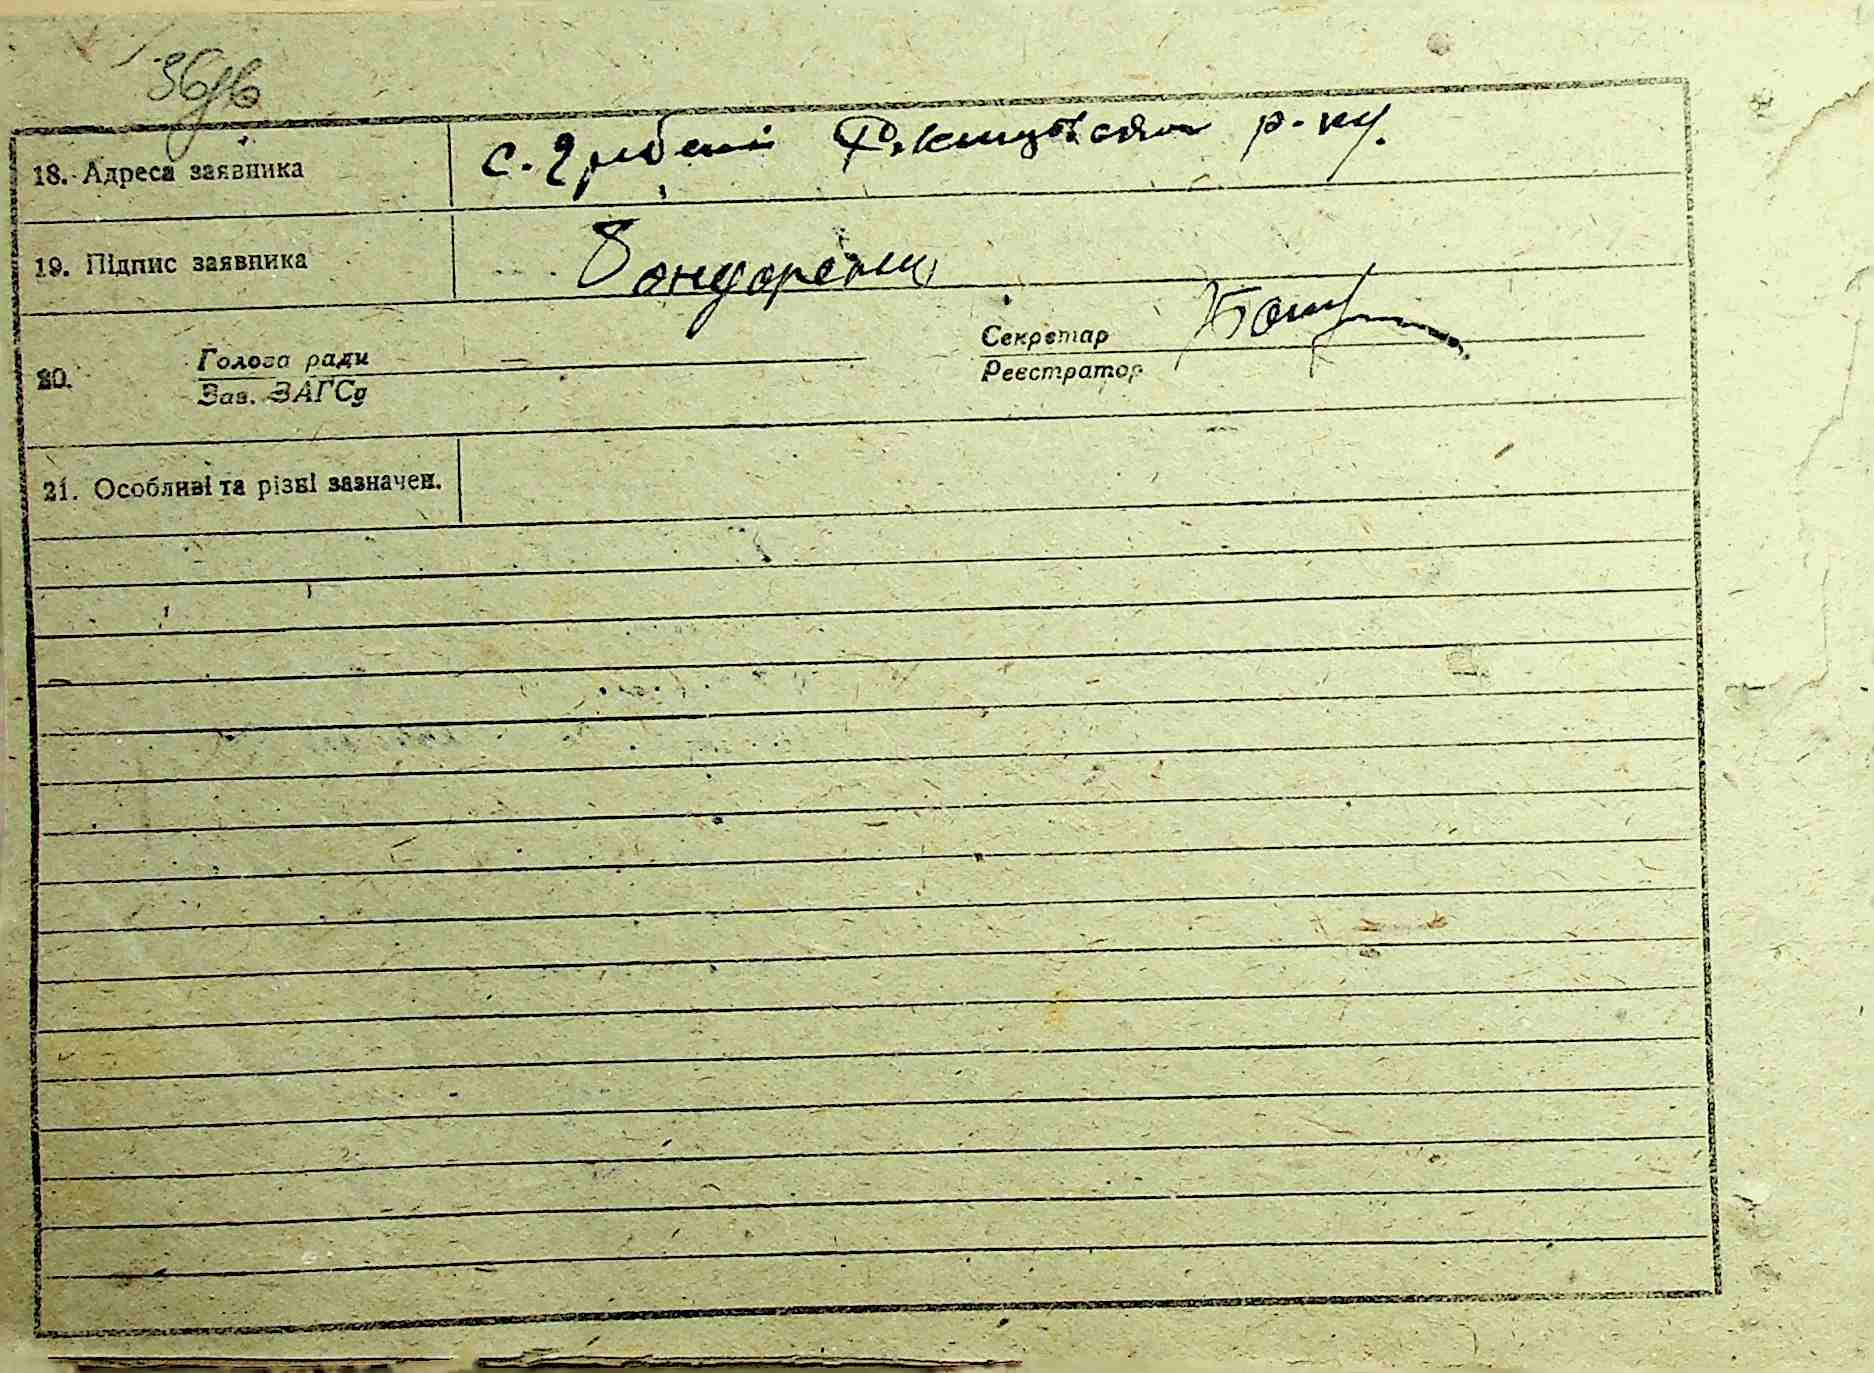 18. Адреса заявника с. Гребені Ржищівськ р-ну.
19. Підпис заявника Бондаренко
20. Голова ради — Секретар
Зав. ЗАГСу Реєстратор
21. Особливі та різні зазначен.